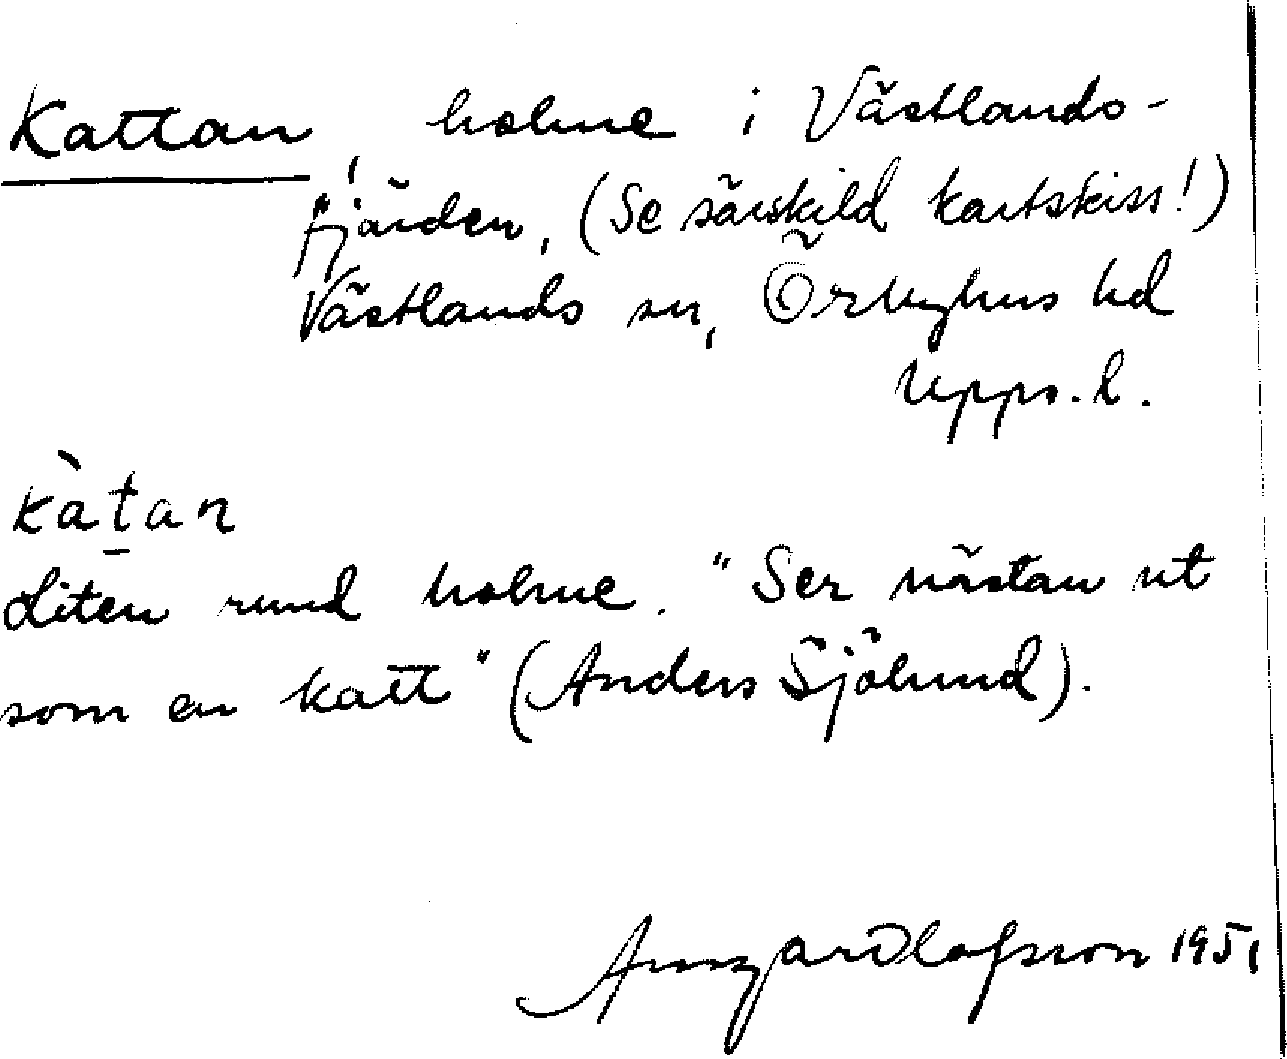 Kattan, holme i Västlands-
fjärden, (Se särskild kartskiss!)
Västlands sn, Örbyhus hd
Upps. l.
kàtan
Liten rund holme. "Ser nästan ut
som en katt" (Anders Sjölund).
Olofsson 1951